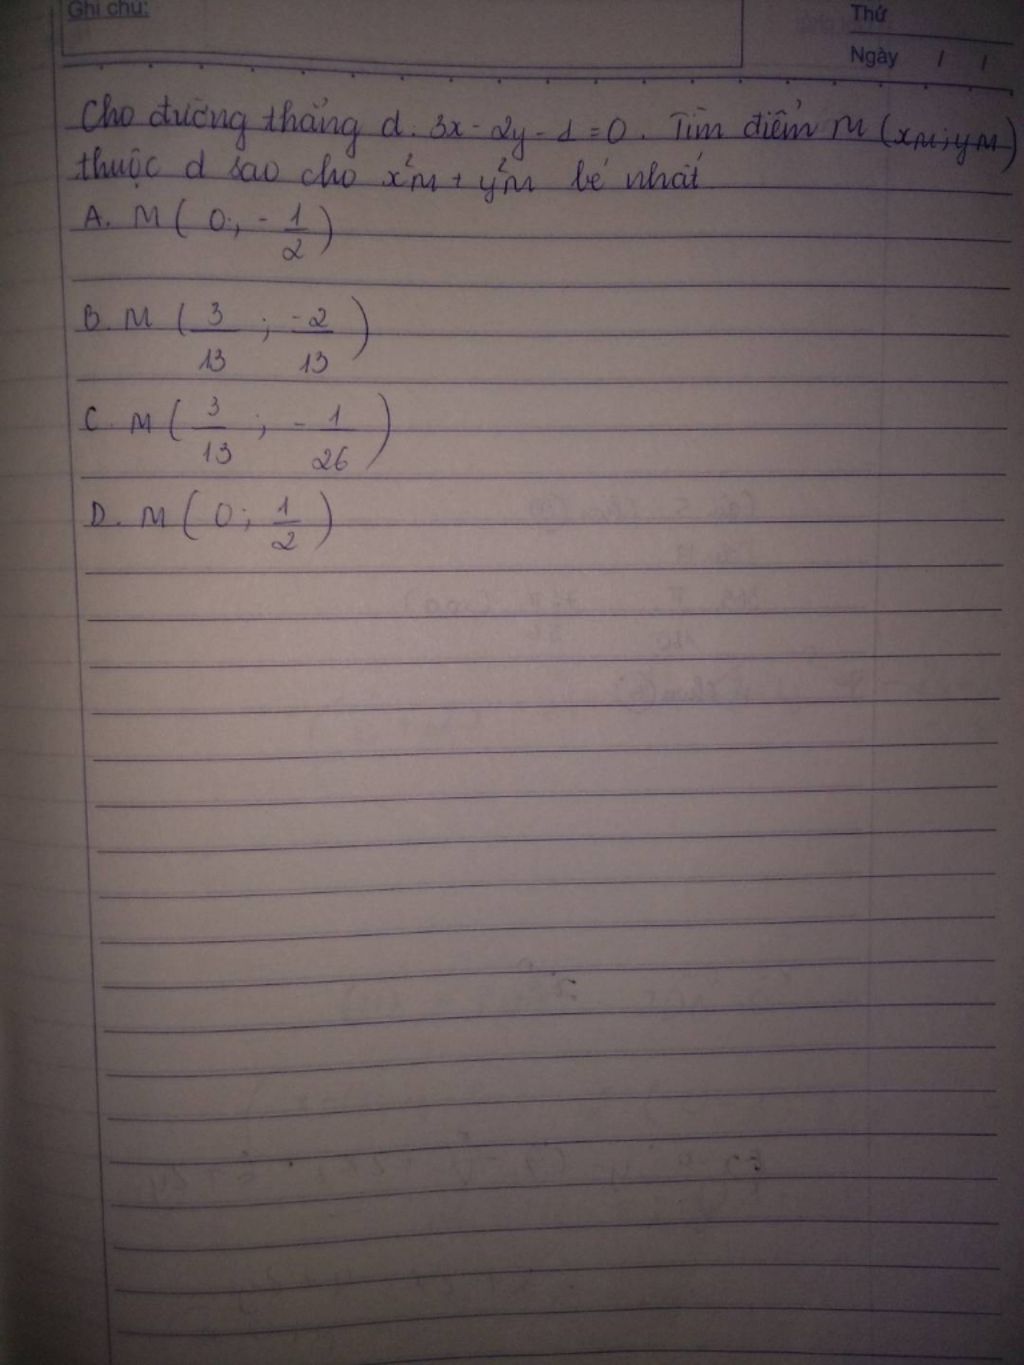 Ghi chú:
Thứ
Ngày / /
Cho đường thẳng d. 3x - 2y - 1 = 0. Tìm điểm M (xM; yM)
thuộc d sao cho x²M + y²M bé nhất
A. M ( 0; - 1/2 )
B. M ( 3/13 ; -2/13 )
C. M ( 3/13 ; - 1/26 )
D. M ( 0; 1/2 )